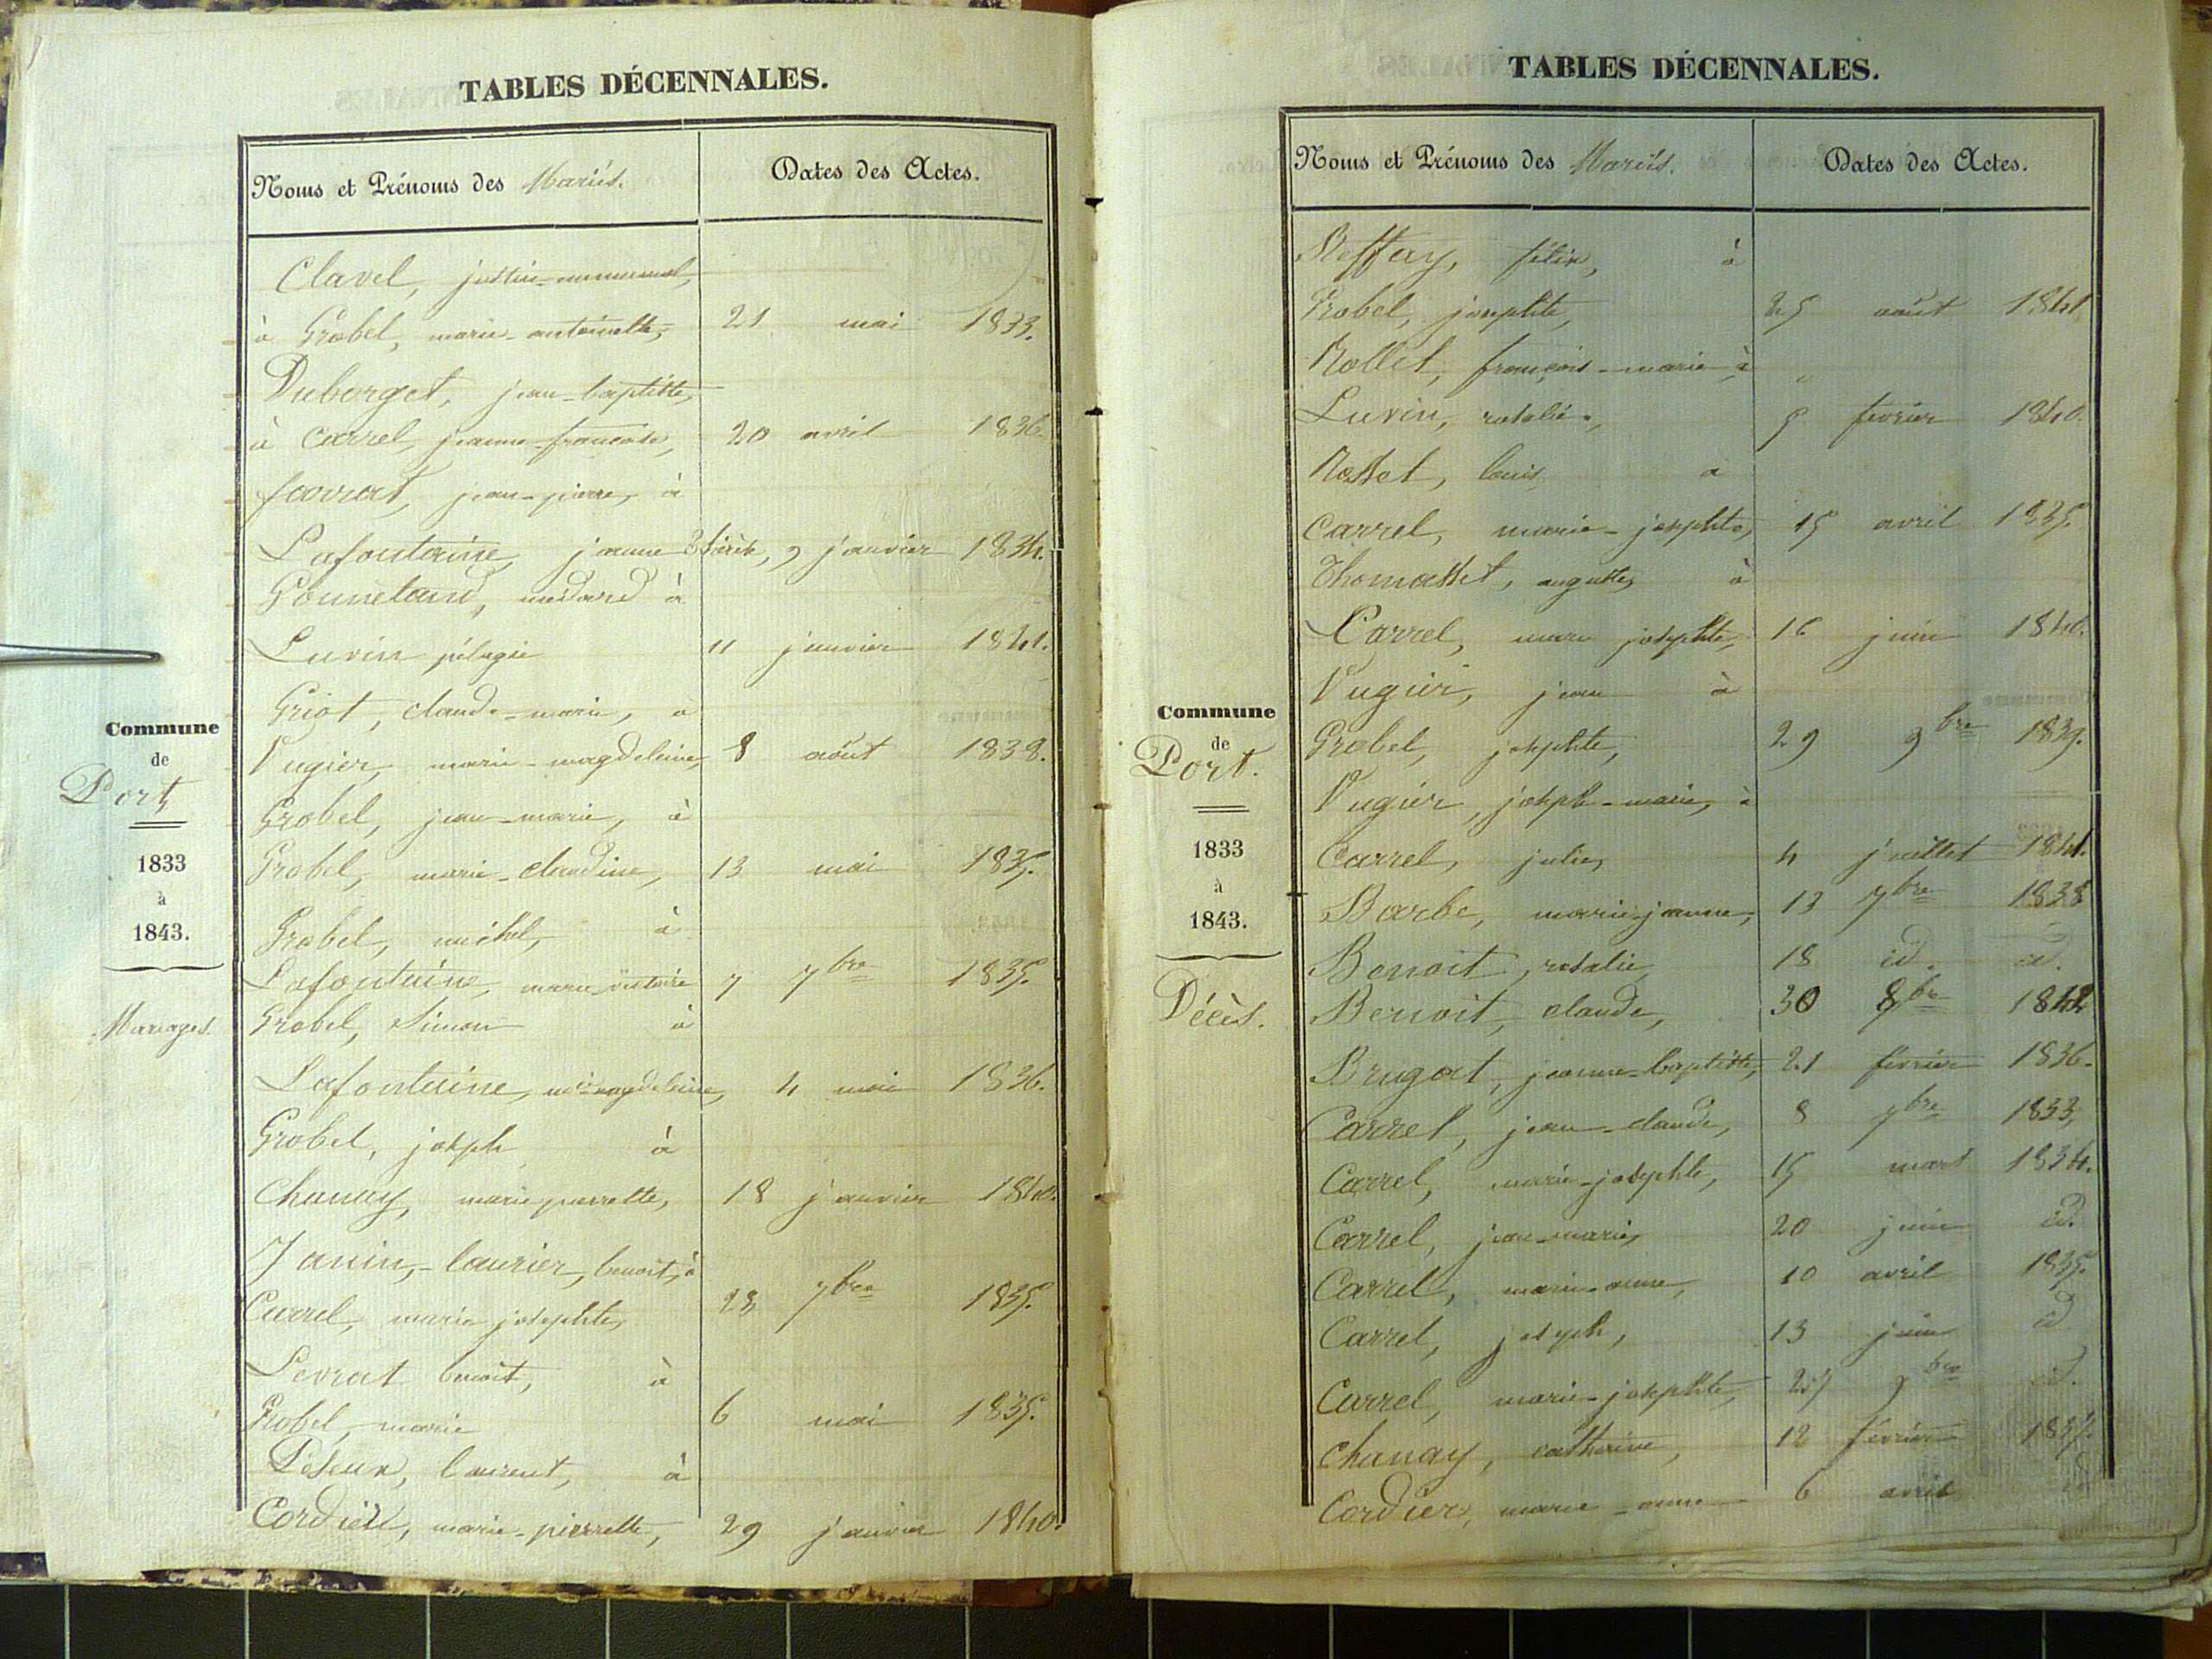 TABLES DÉCENNALES.
Noms et Prénoms des Mariés. Dates des Actes.
Clavel, justin-emmanuel,
à Grobel, marie-antoinette, 21 mai 1833.
Duborget, jean-baptiste,
à Carrel, jeanne-françoise, 20 avril 1836.
favrat, jean-pierre, à
Lafontaine, jeanne 9 janvier 1834.
médard à
Luvin pélagie 11 janvier 1841.
Griot, claude-marie, à
Vugier, marie-magdeleine, 8 août 1838.
Grobel, jean-marie, à
Grobel, marie-claudine, 13 mai 1835.
Grobel, michel, à
Lafontaine, marie-victoire 7 7bre 1835.
Grobel, Simon à
Lafontaine, mie-magdeleine, 4 mai 1836.
Grobel, joseph à
Chanay, marie pierrette, 18 janvier 1840.
Janin,-laurier, benoit, à
Carrel, marie josephte, 23 7bre 1835.
Levrat benoit, à
Grobel, marie 6 mai 1835.
laurent, à
Cordier, marie-pierrette, 29 janvier 1840.
Commune
de
Port
1833
à
1843.
Mariages.
TABLES DÉCENNALES.
Noms et Prénoms des Mariés. Dates des Actes.
félix, à
Grobel, josephte, 25 août 1841
Rollet, françois-marie à
Luvin, rosalie, 5 février 1840.
Rosset, louis à
Carrel, marie-josephte, 15 avril 1835.
Thomasset, auguste, à
Carrel, marie josephte, 16 juin 1840.
Vugier, jean à
Grobel, josephte, 29 9bre 1839.
Vugier, joseph-marie, à
Carrel, julie, 4 juillet 1841.
Barbe, marie-jeanne, 13 7bre 1838
Benoit, rosalie 18 id. id.
Benoit, claude, 30 8bre 1842
Brugat, jeanne-baptiste, 21 février 1836.
Carrel, jean-claude, 8 7bre 1833,
Carrel, marie-josephte, 15 mars 1834.
Carrel, jean-marie, 20 juin id.
Carrel, marie-anne, 10 avril 1835.
Carrel, joseph, 13 juin id
Carrel, marie-josephte, 27 9bre id.
Chanay, catherine, 12 février
Cordier, marie-anne 6 avril
Commune
de
Port.
1833
à
1843.
Décès.